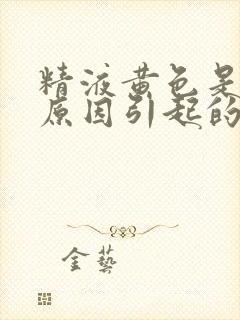 精液黄色是
原因引起的
金藝